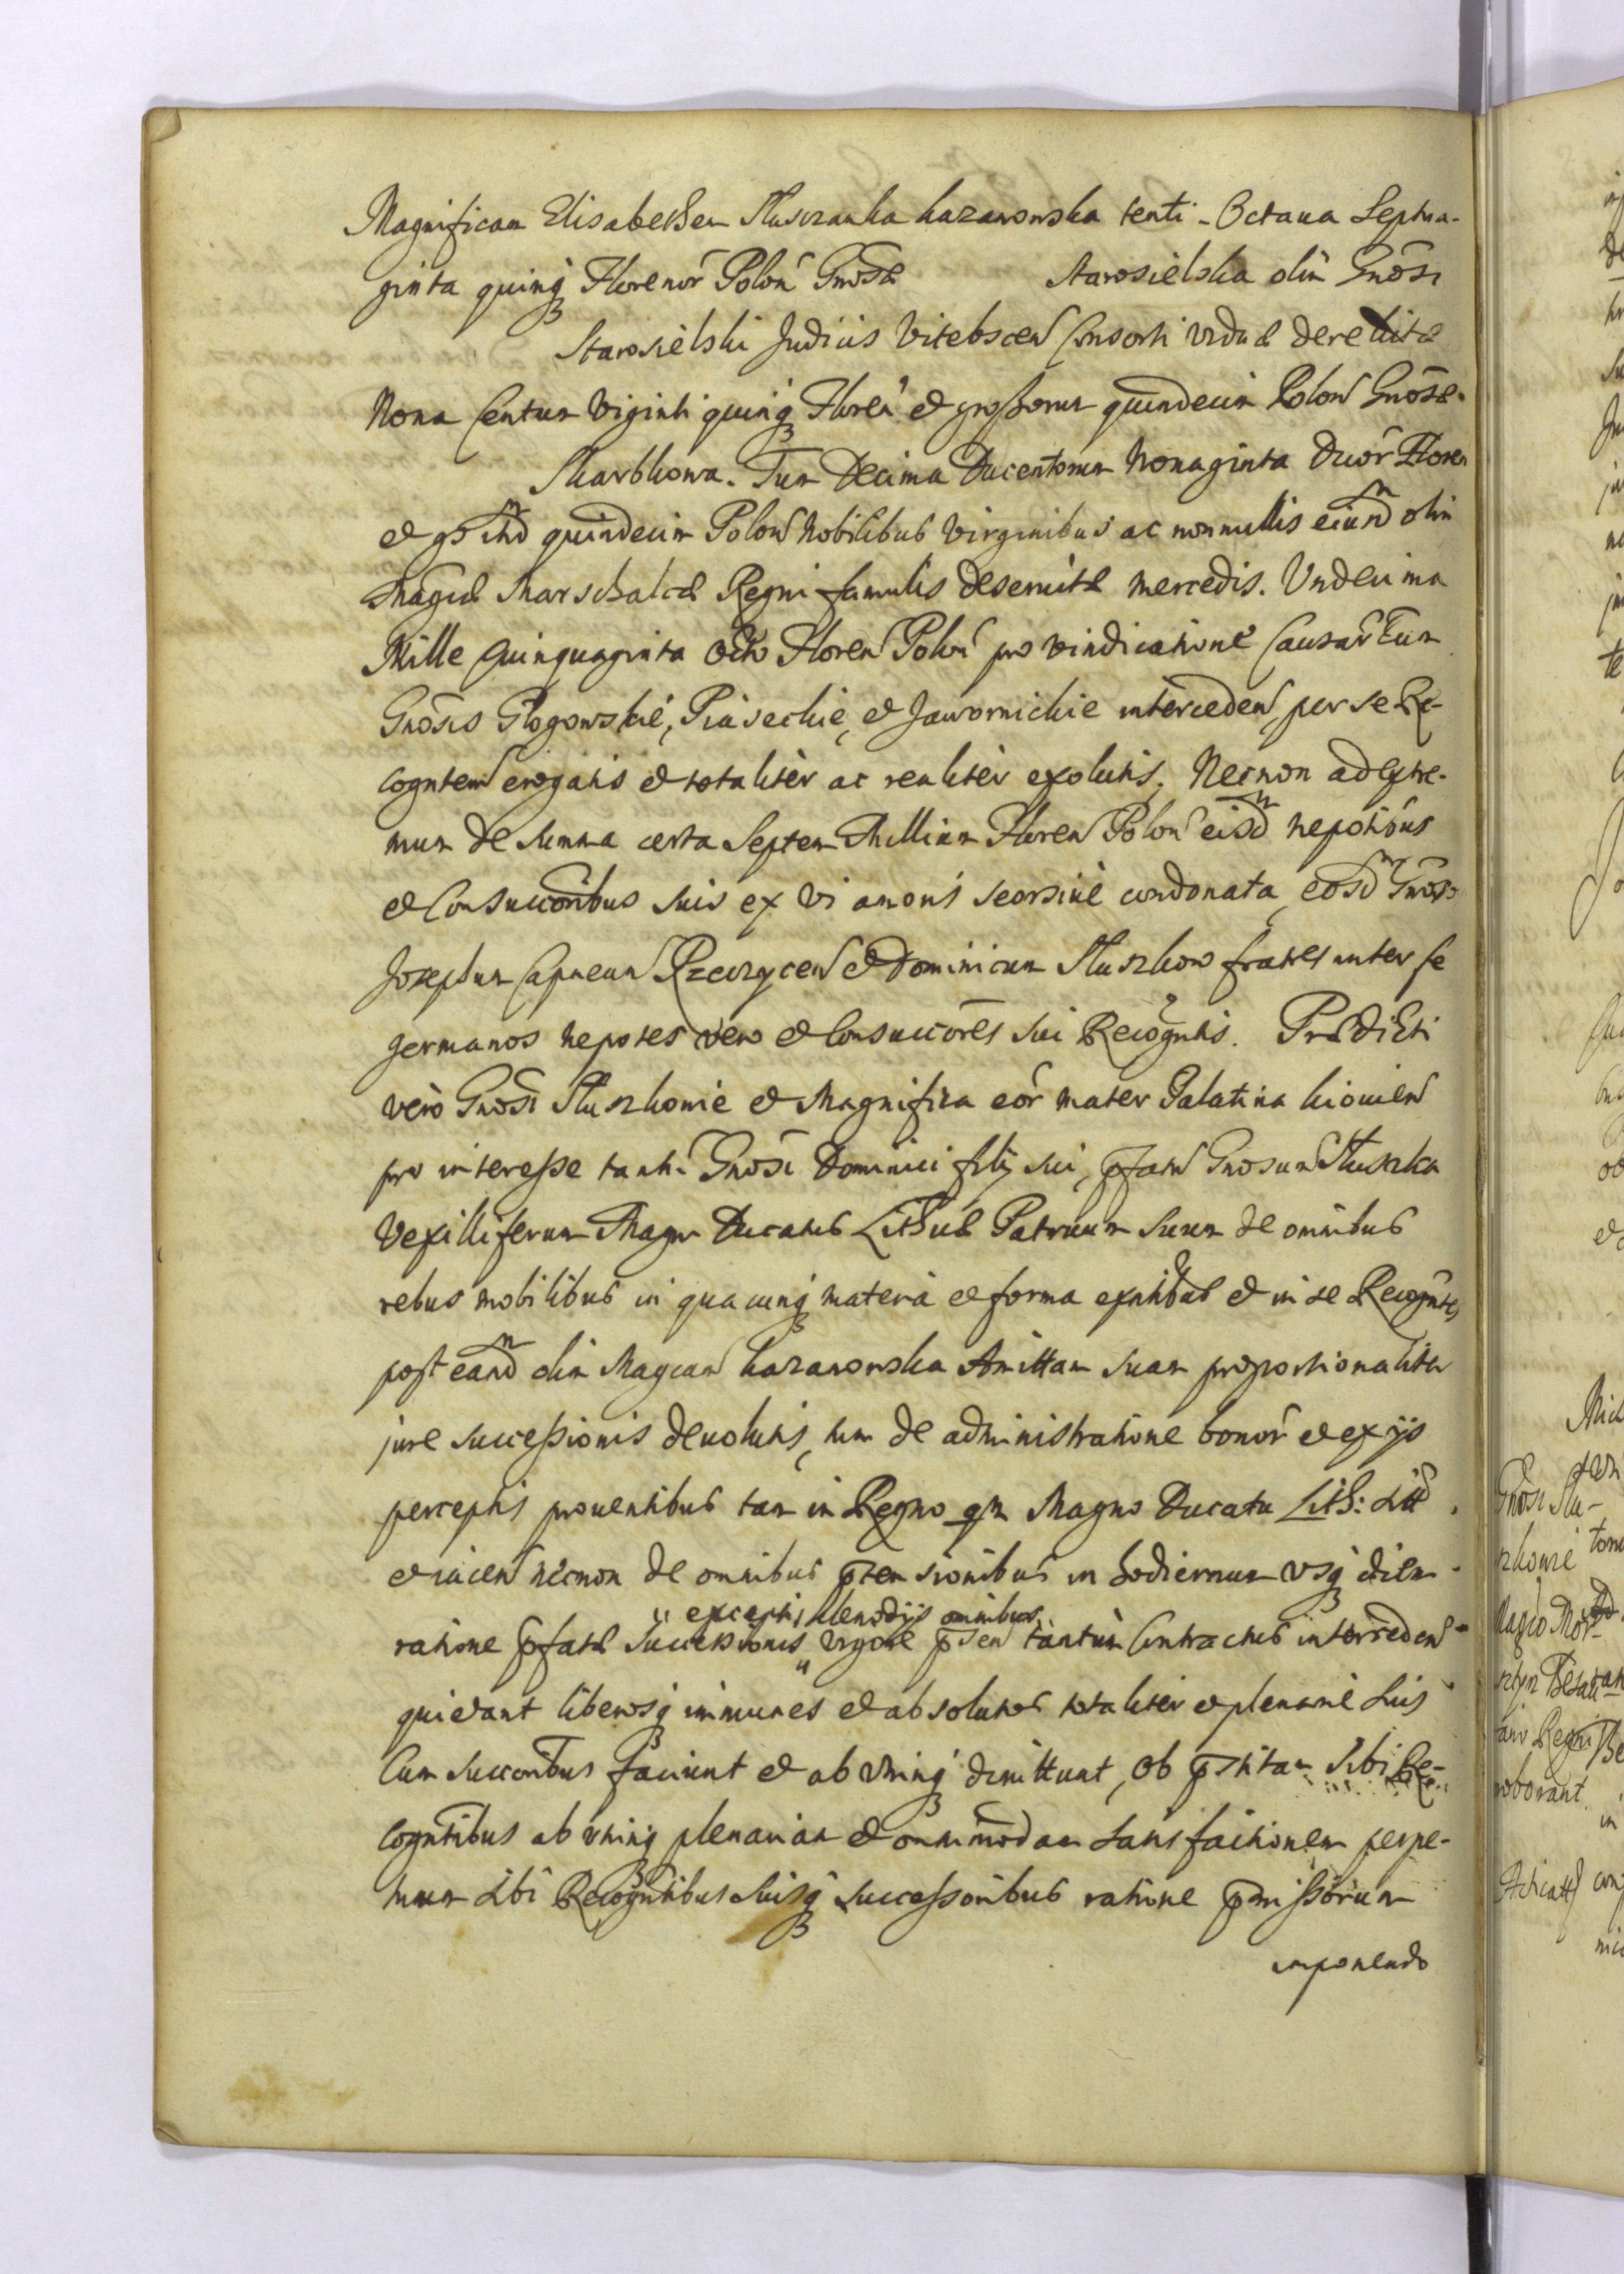 Magnificam Elisabetham Sluszczanka Kazanowska tenti. Octaua Septua-
ginta quinq Florenor Polon Gnosæ Starosielska olim Gnosi
Starosielski Judicis Vitebscen Consorti viduæ derelictæ
Nona Centum Viginti quinq Floren et grossorum quindecim Polon Gnosæ
Skarbkowa. Tum Decima Ducentorum Nonaginta duor Floren
et quindecim Polon Nobilibus Virginibus ac nonnullis eiusd olim
Magcæ Marschalcæ Regni famulis deseruitæ mercedis. Undecima
Mille Quinquaginta Octo Floren Polon pro vindicatione Causar cum
Gnosis Glogowskie, Piaseckie, et Jawornickie interceden, per se Re-
cognten erogatis et totaliter ac realiter exolutis. Necnon ad extre-
mum de summa certa Septem Millium Floren Polon eisd nepotibus
et Consuccoribus suis ex vi amoris seorsiue condonata, eosd Gnosos
Josephum Capneum Rzeczycen et Dominicum Sluszkow fratres inter se
germanos nepotes vero et Consuccores sui Recogntis. Prædicti
vero Gnosi Sluszkowie et Magnifica eor mater Palatina Kiouien
pro interesse tanti Gnosi Dominici filij sui, pfatu Gnosum Sluszka
Vexilliferum Magni Ducatus Lithuæ Patruum suum de omnibus
rebus mobilibus in quacunq materia et forma extntibus et in se Recogntes
post eand olim Magcam Kazanowska Amittam suam proportionaliter
jure successionis deuolutis, tum de administratione bonor et ex ijs
perceptis prouentibus tam in Regno qm Magno Ducatu Lith: sitt
et iacen necnon de omnibus ptensionibus in hodiernum vsq diem
exceptis clenodijs omnibus
ratione pfatæ Successionis vigore psen tantum Contractus interceden
quietant liberosq immunes et absolutos totaliter et plenarie suis
Cum succoribus faciunt et ab vtrinq dimittunt, ob pstitam sibi Re-
cogntibus ab vtrinq plenariam et omnimodam satisfactionem perpe-
tuum sibi Recogntibus suisq successoribus ratione pmissorum
imponendo
Gnosi Slu-
szkowie
roborant